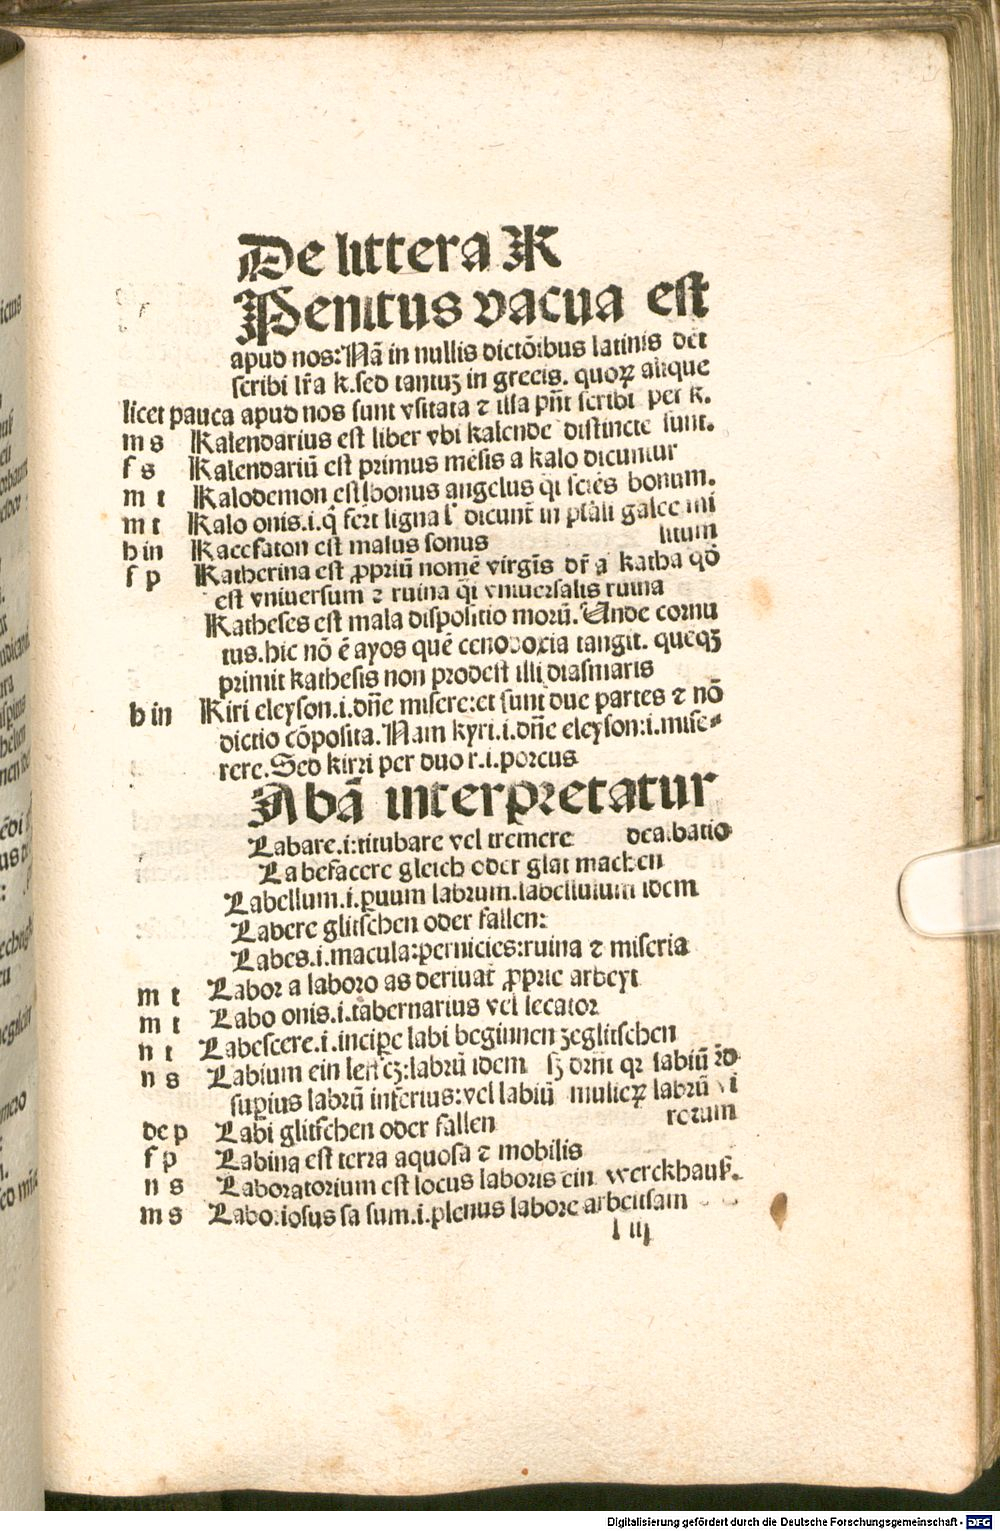 De littera K
Penitus vacua est
apud nos: Nã in nullis dictõibus latinis det
scribi lr̃a k. sed tantuꝫ in grecis. quoꝝ alique
licet pauca apud nos sunt vsitata ⁊ illa pñt scribi per k.
m s Kalendarius est liber vbi kalende distincte sunt.
f s Kalendariũ est primus mẽsis a kalo dicuntur
m t Kalodemon est bonus angelus qi scies bonum.
m t Kalo onis .i. q̃ fert ligna dicunt̃ in plãli galee mi
h in Kacefaton est malus sonus litum
f p Katherina est ꝓpriũ nomẽ virgĩs dr̃ a katha qõ
est vniuersum ⁊ ruina q̃i vniuersalis ruina
Katheses est mala dispositio morũ. Vnde cornu
tus. hic nõ ẽ ayos quẽ cenodoxia tangit. quẽqꝫ
primit kathesis non prodest illi diasmatis
h in Kiri eleyson .i. dñe misere: et sunt due partes ⁊ nõ
dictio cõposita. Nam kyri .i. dñe eleyson: .i. mise⸗
rere. Sed kirri per duo r .i. porcus
Abã interpretatur
Labare .i. titubare vel tremere dealbatio
Labefacere gleich oder glat machen
Labellum .i. ꝑuum labrum. labellulum idem
Labere glitschen oder fallen:
Labes .i. macula: pernicies: ruina ⁊ miseria
m t Labor a laboro as deriuat̃ ꝓprie arbeyt
m t Labo onis .i. tabernarius vel lecator
n t Labescere .i. inciꝑe labi beginnen zeglitschen
n s Labium ein lefcꝫ: labrũ idem sꝫ drñt qꝛ labiũ ẽ
suꝑius labrũ inferius: vel labiũ mulieꝝ labrũ vi
de p Labi glitschen oder fallen rorum
f p Labina est terra aquosa ⁊ mobilis
n s Laboratorium est locus laboris ein werckhauß.
m s Laboriosus sa sum .i. plenus labore arbeitsam
l iij
Digitalisierung gefördert durch die Deutsche Forschungsgemeinschaft - DFG